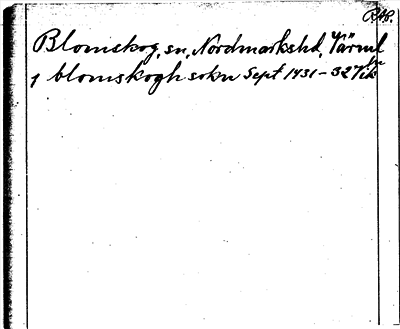 RAP.
Blomskog, sn, Nordmarkshd, Värml
ln
i blomskogh sokn Sept 1431-32